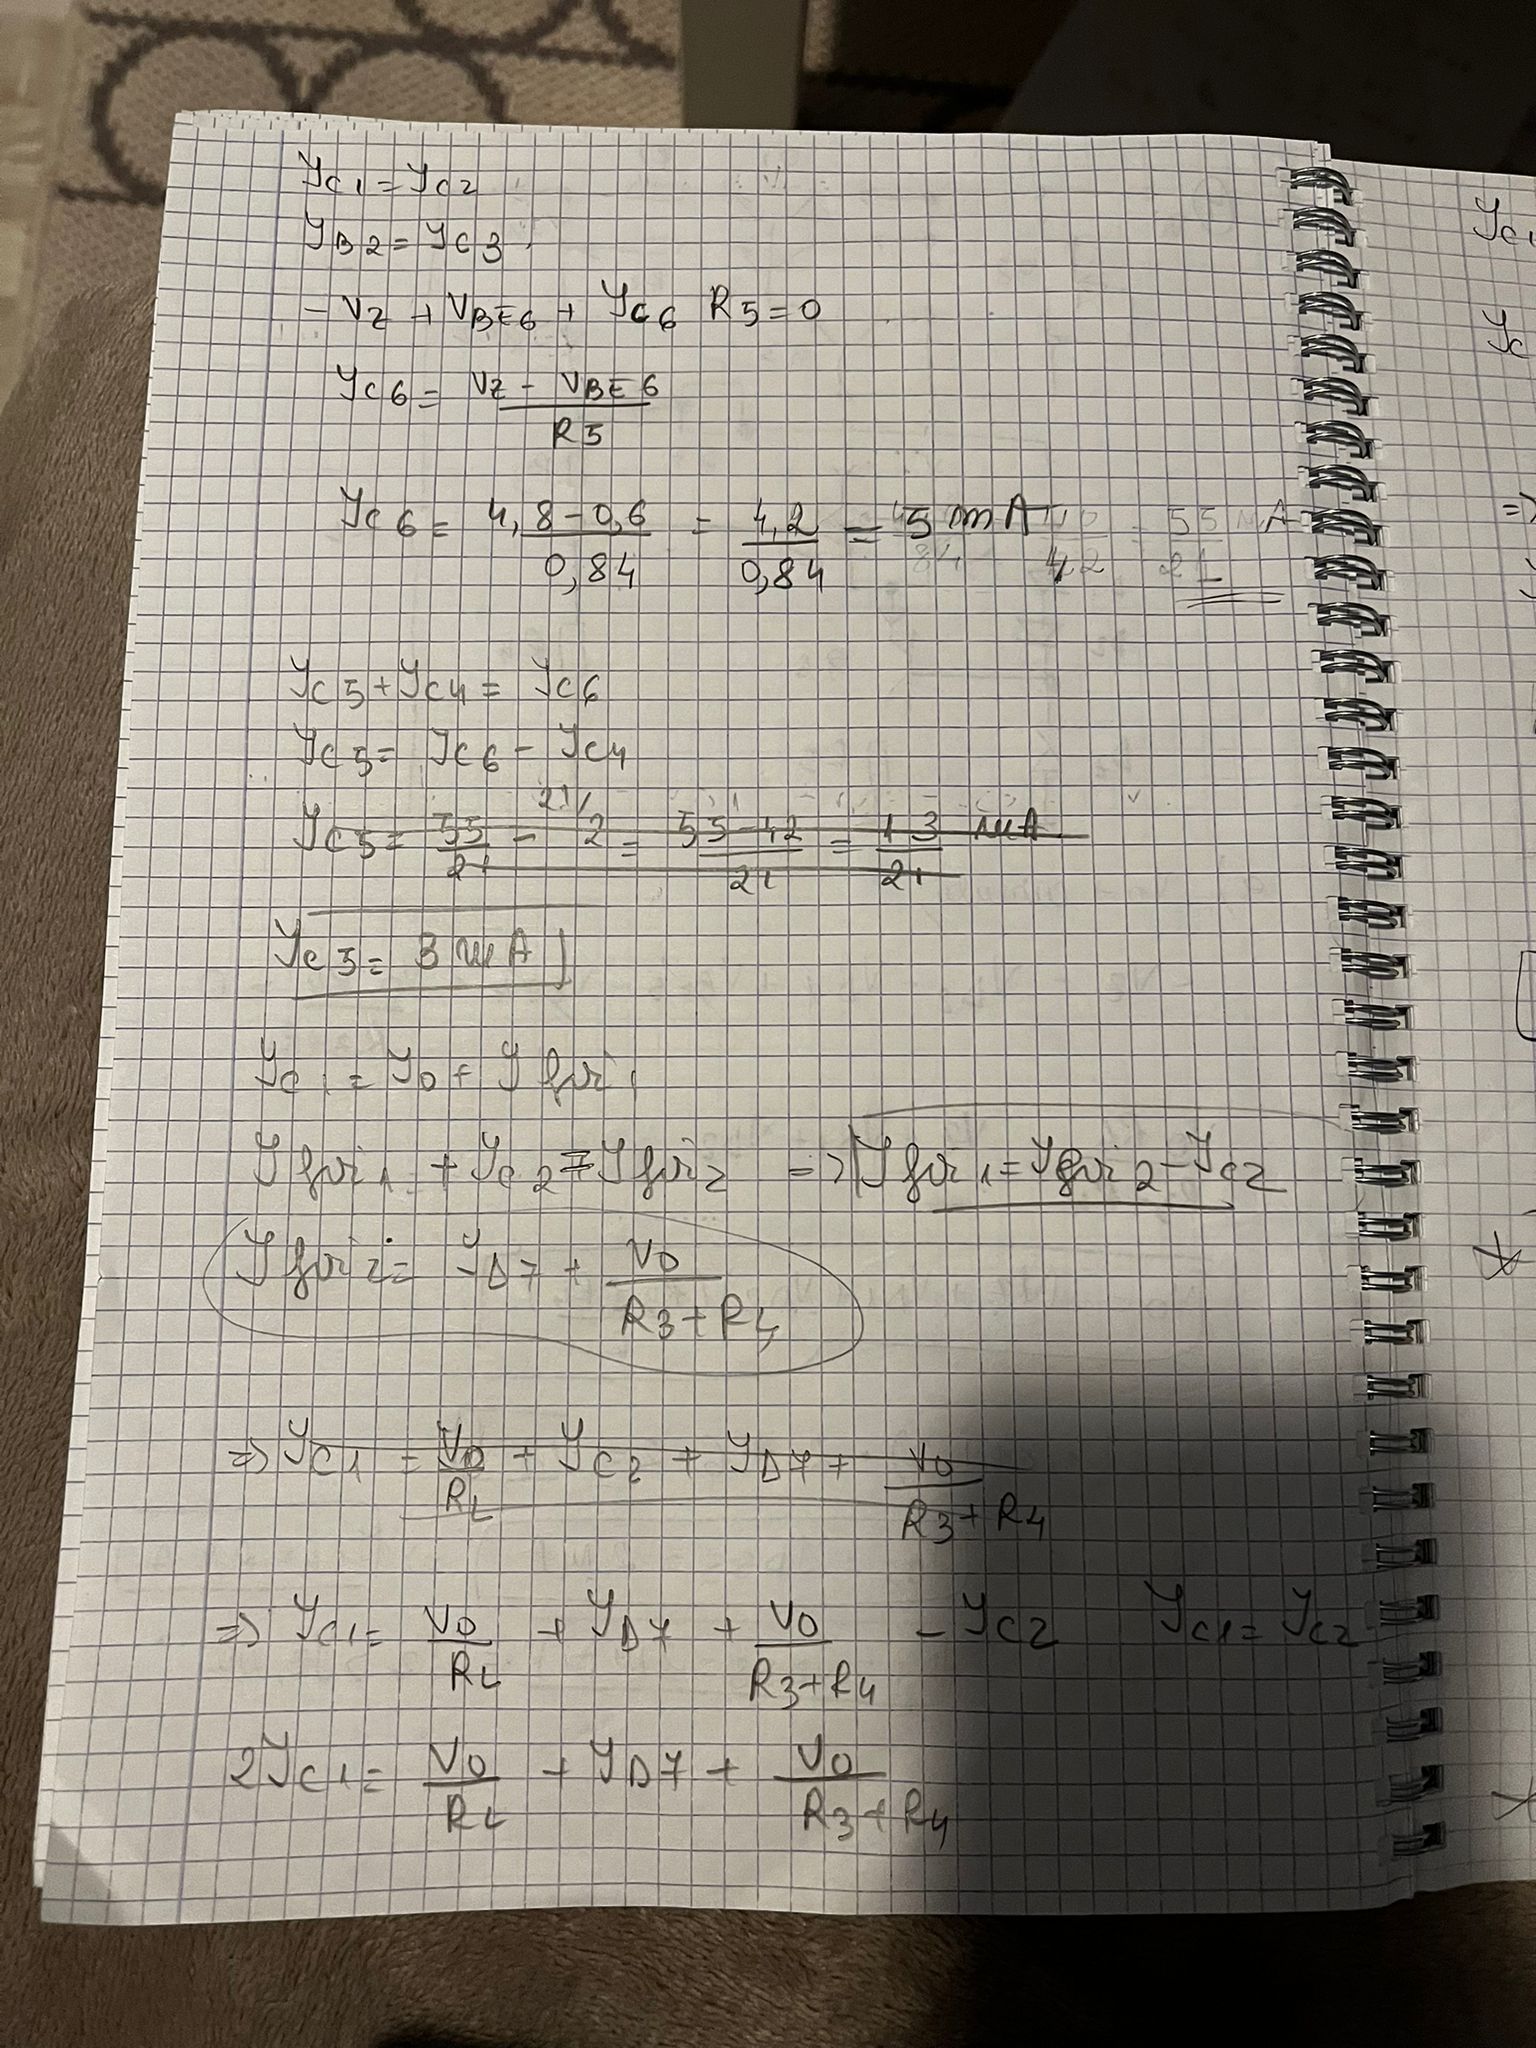 Ic1 = Ic2
IB2 = Ic3
- Vz + VBE6 + Ic6 R5 = 0
Ic6 = Vz - VBE6 / R5
Ic6 = 4,8 - 0,6 / 0,84 = 4,2 / 0,84 = 5 mA = 55 / 21 mA
Ic5 + Ic4 = Ic6
Ic5 = Ic6 - Ic4
Ic5 = 55 / 21 - 21/ 2 = 55 - 42 / 21 = 13 / 21 mA
Ic5 = 3 mA
Ic1 = I0 + Ifir1
Ifir1 + Ic2 = Ifir2 => Ifir1 = Ifir2 - Ic2
Ifir2 = ID7 + V0 / R3 + R4
=> Ic1 = V0 / RL + Ic2 + ID7 + V0 / R3 + R4
=> Ic1 = V0 / RL + ID7 + V0 / R3 + R4 - Ic2 Ic1 = Ic2
2Ic1 = V0 / RL + ID7 + V0 / R3 + R4